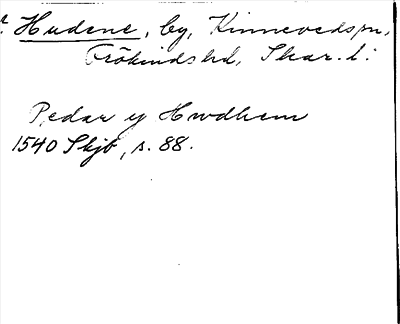 Hudene, by, Kinnevedspn,
Frökindshd, Skar. l.
Pedar y Hwdhem
1540 Skjb, s. 88.